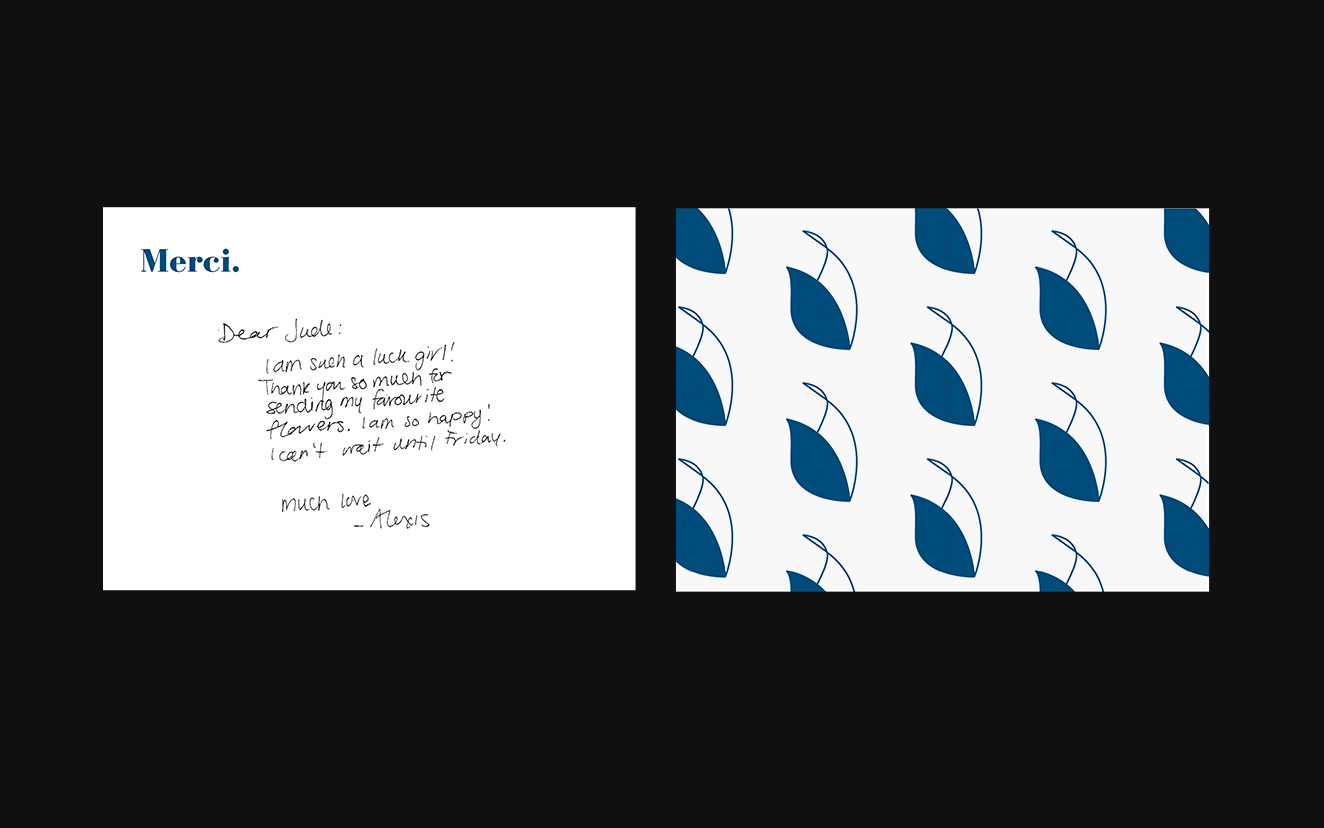 Merci.
Dear Jude:
I am such a luck girl!
Thank you so much for
sending my favourite
flowers. I am so happy!
I can't wait until Friday.
much love
- Alexis